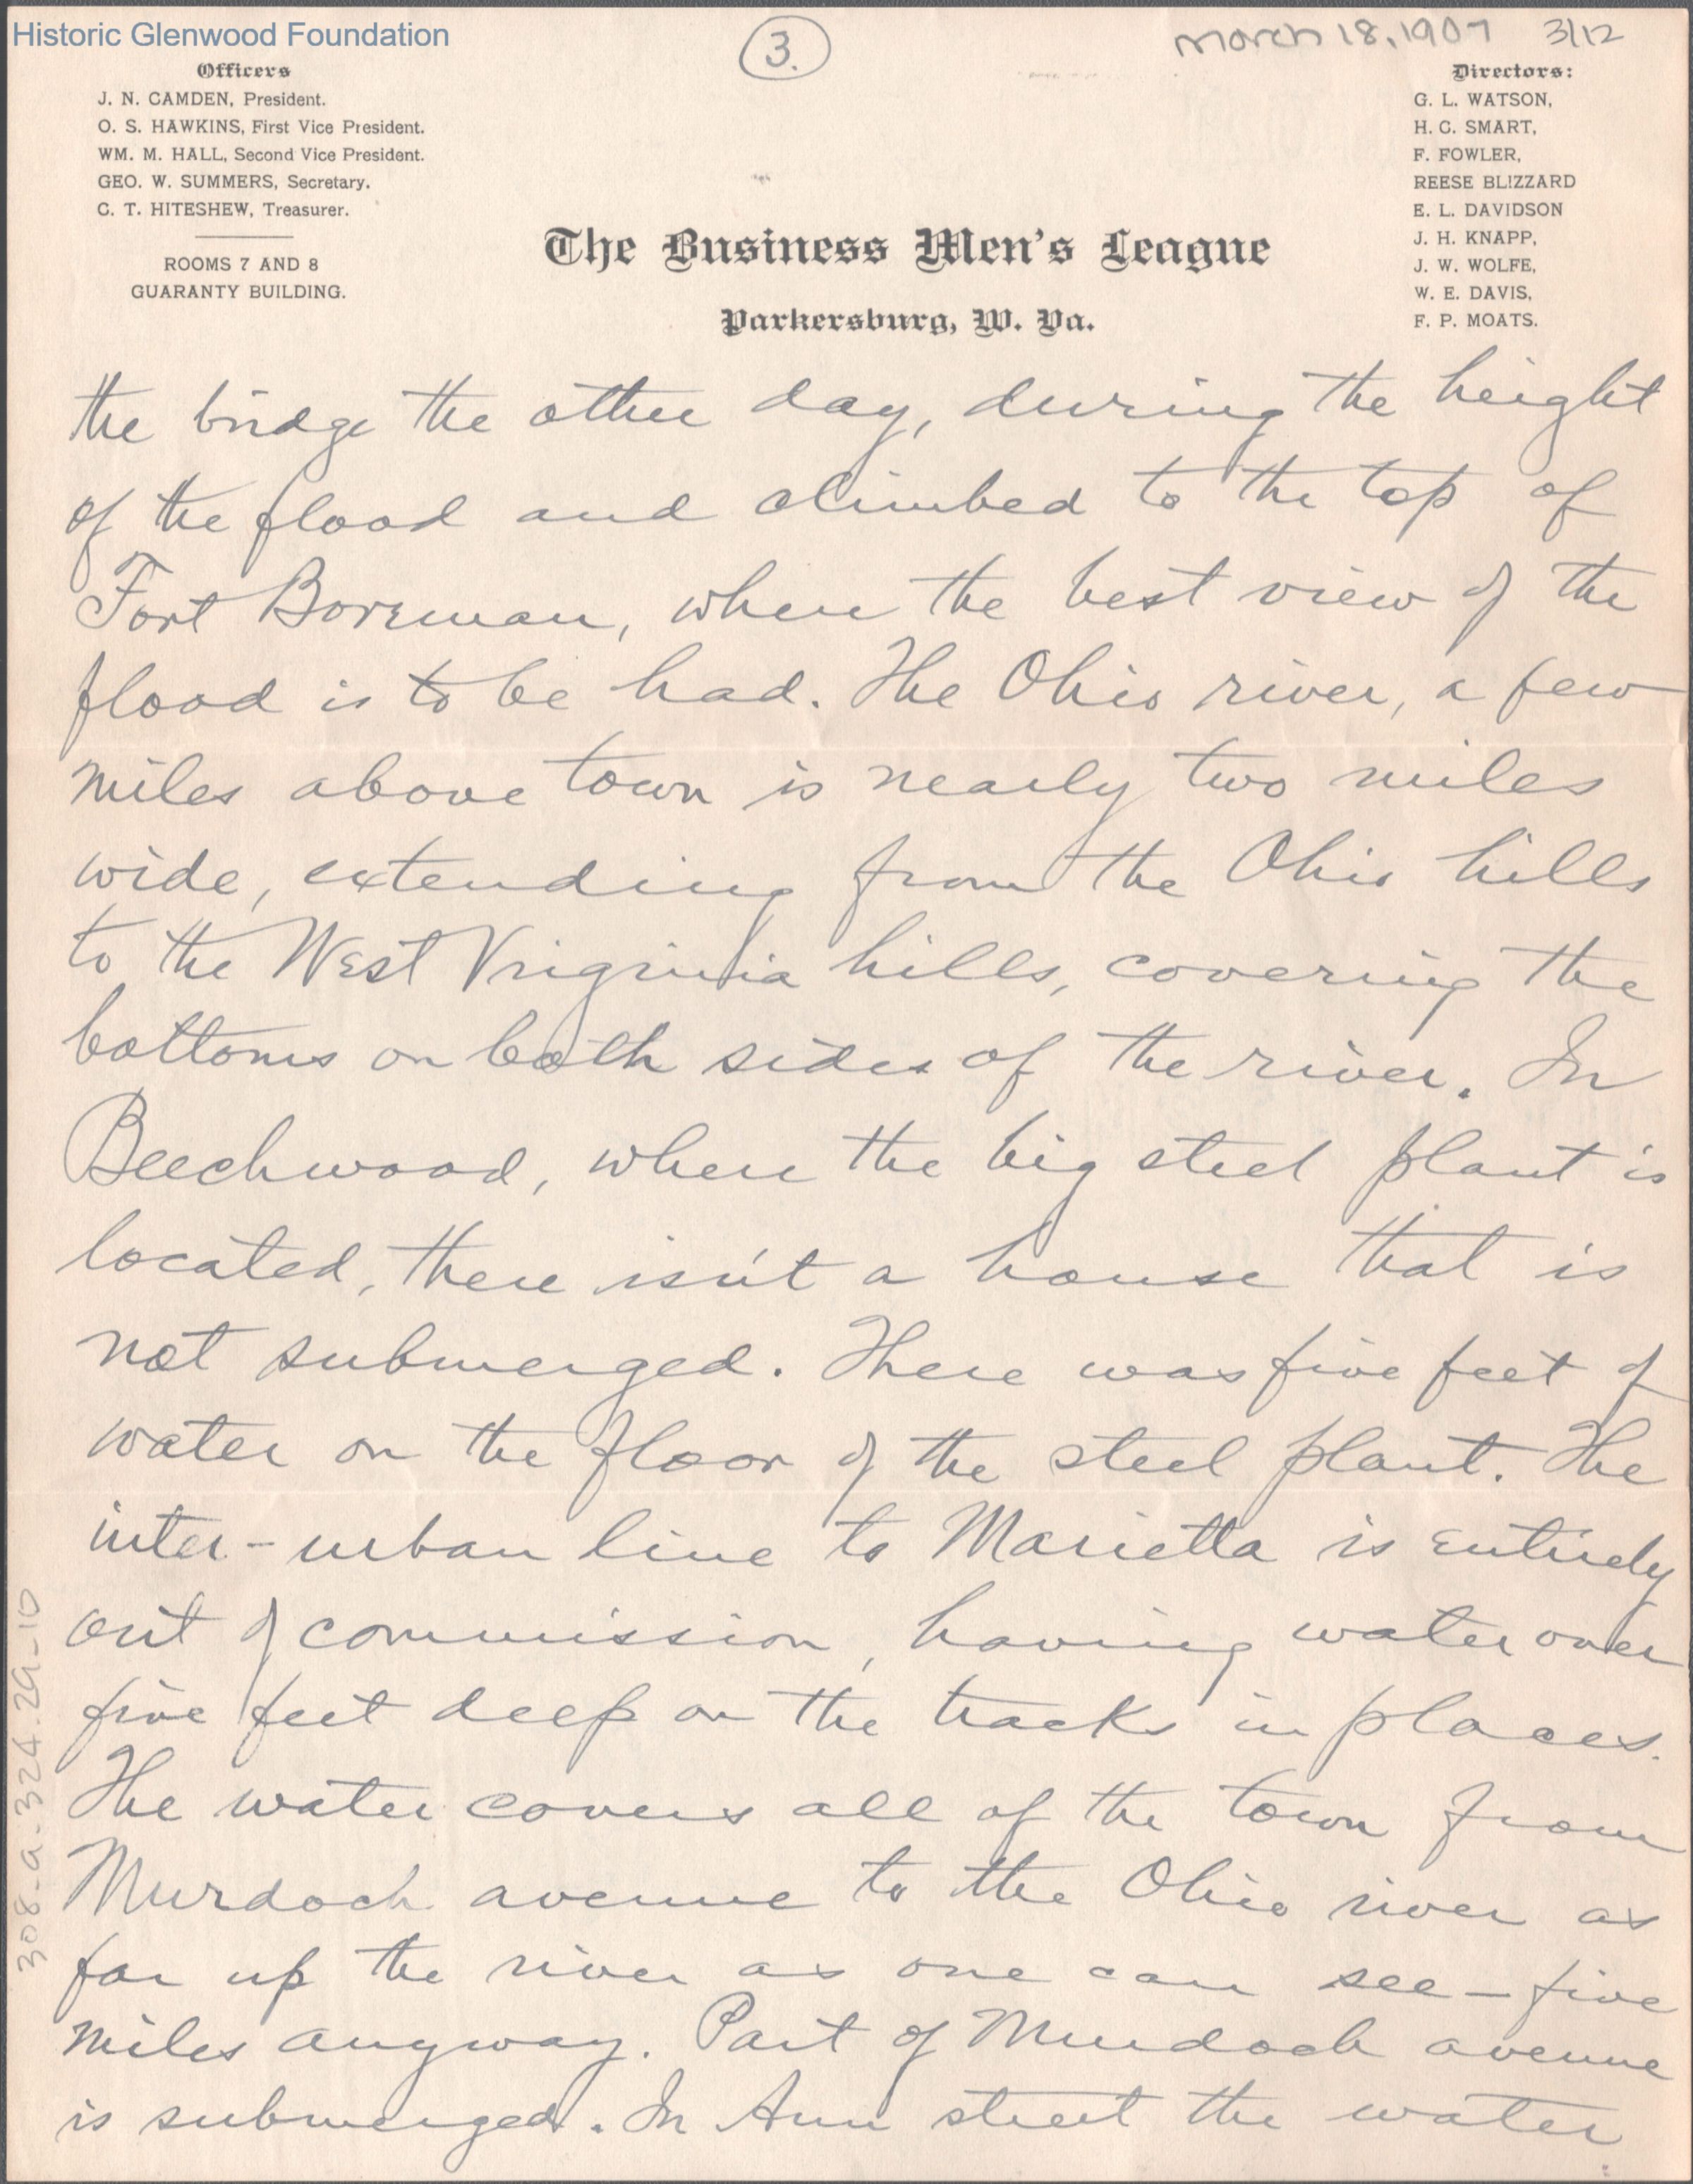 Historic Glenwood Foundation
3.
March 18, 1907 3/12
Officers
J. N. CAMDEN, President.
O. S. HAWKINS, First Vice President.
WM. M. HALL, Second Vice President.
GEO. W. SUMMERS, Secretary.
C. T. HITESHEW, Treasurer.
ROOMS 7 AND 8
GUARANTY BUILDING.
The Business Men's League
Parkersburg, W. Va.
Directors:
G. L. WATSON,
H. C. SMART,
F. FOWLER,
REESE BLIZZARD
E. L. DAVIDSON
J. H. KNAPP,
J. W. WOLFE,
W. E. DAVIS,
F. P. MOATS.
the bridge the other day, during the height
of the flood and climbed to the top of
Fort Boreman, where the best view of the
flood is to be had. The Ohio river, a few
miles above town is nearly two miles
wide, extending from the Ohio hills
to the West Virginia hills, covering the
bottoms on both sides of the river. In
Beechwood, where the big steel plant is
located, there isn't a house that is
not submerged. There was five feet of
water on the floor of the steel plant. The
inter-urban line to Marietta is entirely
out of commission, having water over
five feet deep on the tracks in places.
The water covers all of the town from
Murdoch avenue to the Ohio river as
far up the river as one can see - five
miles anyway. Part of Murdoch avenue
is submerged. In Ann street the water
308-a-324.29-10